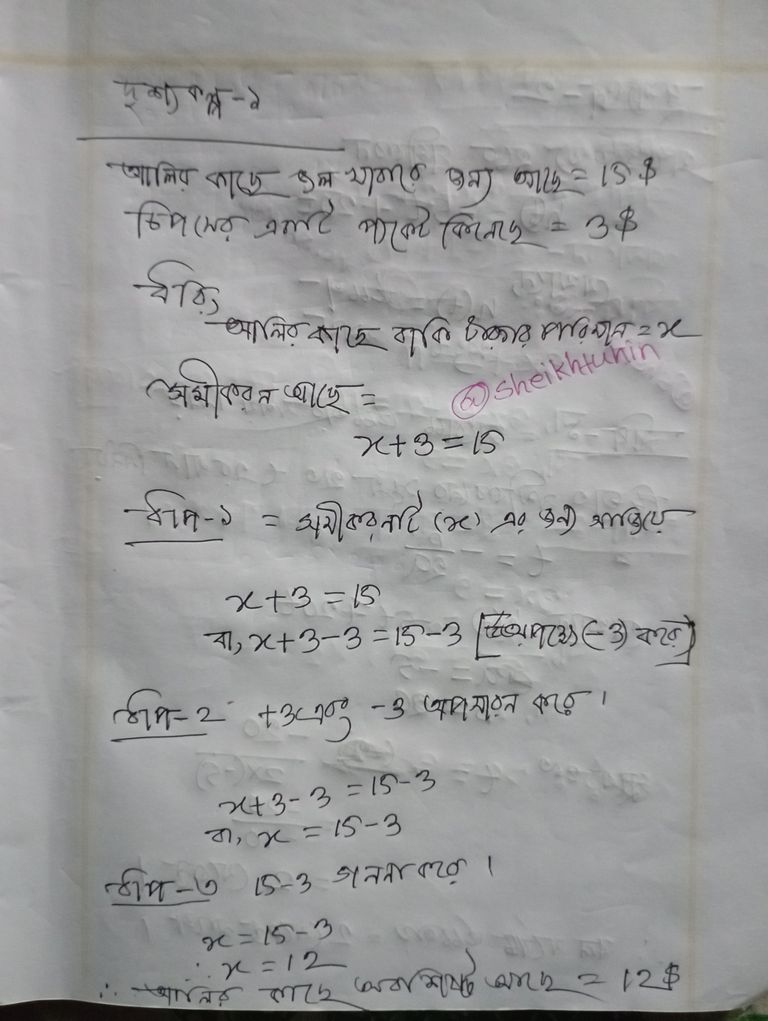 দৃশ্যকল্প-১
আলির কাছে জল খাবারের জন্য আছে = 15 $
চিপসের একটি প্যাকেট কিনেছে = 3 $
ধরি,
আলির কাছে বাকি টাকার পরিমান = x
@sheikhtuhin
সমীকরন আছে =
x + 3 = 15
ধাপ-১ = সমীকরনটি (x) এর জন্য সাজিয়ে
x + 3 = 15
বা, x + 3 - 3 = 15 - 3 [উভয়পক্ষে (-3) করে]
ধাপ-২ +3 এবং -3 অপসারন করে।
x + 3 - 3 = 15 - 3
বা, x = 15 - 3
ধাপ-৩ 15 - 3 গননা করে।
x = 15 - 3
∴ x = 12
∴ আলির কাছে অবশিষ্ট আছে = 12 $